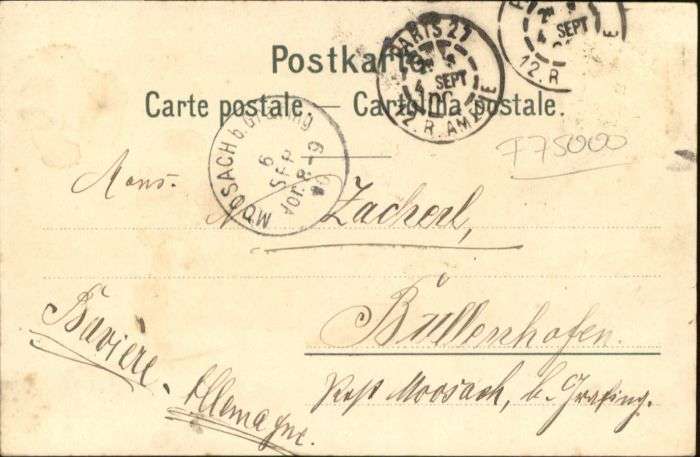 Postkarte.
Carte postale. — Cartolina postale.
PARIS 27
4 SEPT
12. R. AMPÈRE
4 SEPT
12. R
MOOSACH b. Grafing
6
SEP
Vor. 8-9
F75000
Mons. Zacherl,
Büllenhofen.
Post Moosach, b. Grafing.
Bavière - Allemagne.